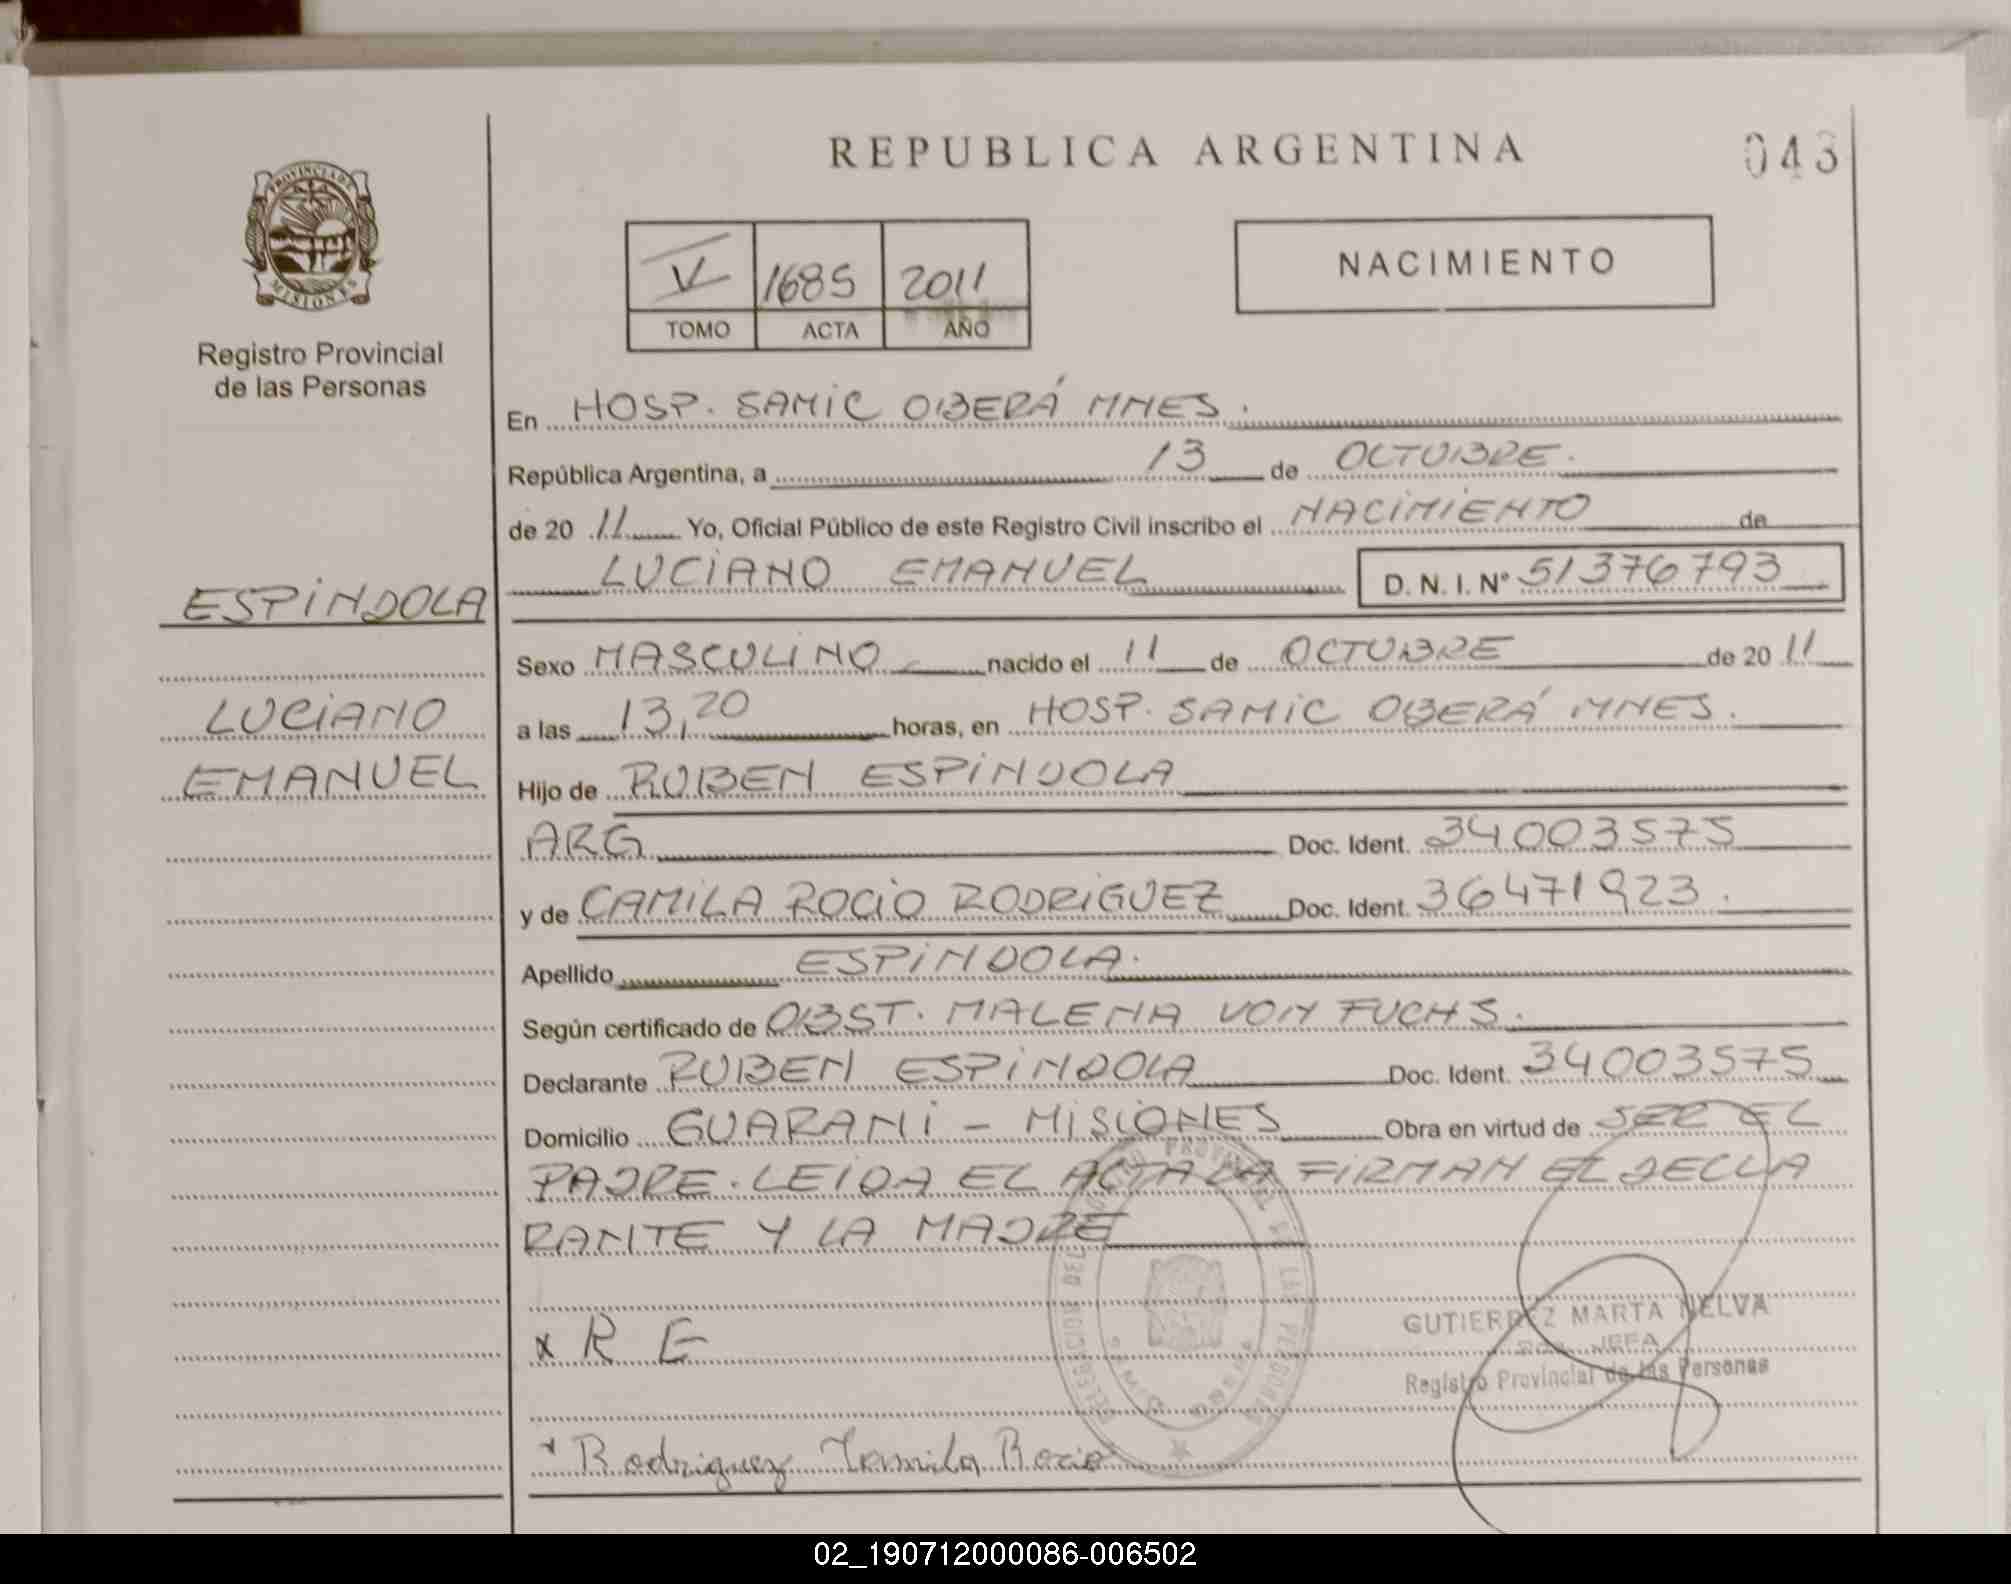 REPUBLICA ARGENTINA
043
PROVINCIA DE
MISIONES
Registro Provincial
de las Personas
V 1685 2011
TOMO ACTA AÑO
NACIMIENTO
En HOSP. SAMIC OBERÁ MNES.
República Argentina, a 13 de OCTUBRE.
de 20 11 Yo, Oficial Público de este Registro Civil inscribo el NACIMIENTO de
LUCIANO EMANUEL D. N. I. Nº 51376793
ESPINDOLA
LUCIANO
EMANUEL
Sexo MASCULINO nacido el 11 de OCTUBRE de 20 11
a las 13,20 horas, en HOSP. SAMIC OBERÁ MNES.
Hijo de RUBEN ESPINDOLA
ARG Doc. Ident. 34003575
y de CAMILA ROCIO RODRIGUEZ Doc. Ident. 36471923.
Apellido ESPINDOLA.
Según certificado de OBST. MALENA VON FUCHS.
Declarante RUBEN ESPINDOLA Doc. Ident. 34003575
Domicilio GUARANI - MISIONES Obra en virtud de SER EL
PADRE. LEIDA EL ACTA LA FIRMAN EL DECLA
RANTE Y LA MADRE
x R E
GUTIERREZ MARTA NELVA
JEFA
Registro Provincial de las Personas
x Rodriguez Camila Rocio
02_190712000086-006502